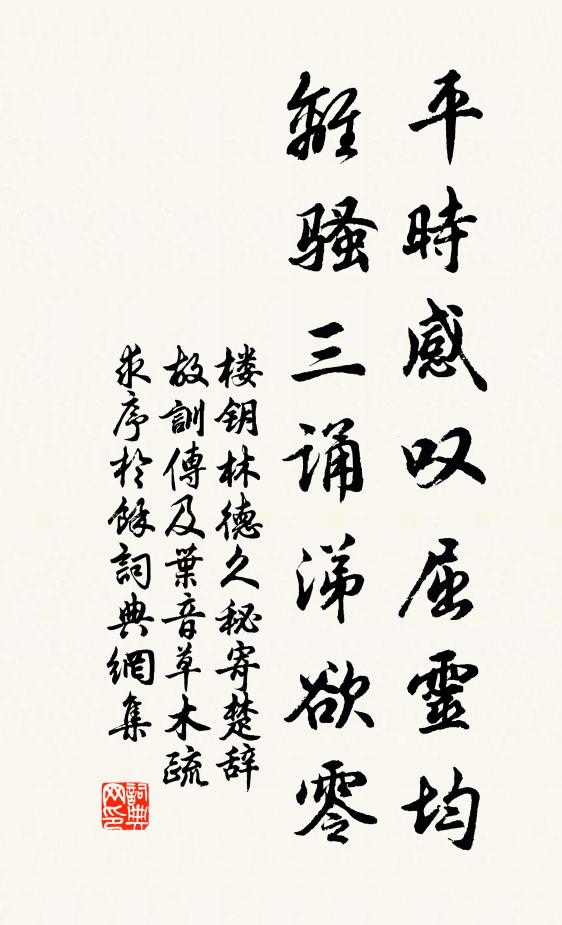 平時感叹屈靈均
離騷三誦涕欲零
楼钥林德久秘寄楚辞
故訓傳及葉音草木疏
求序於餘詞典網集
詞典
网印